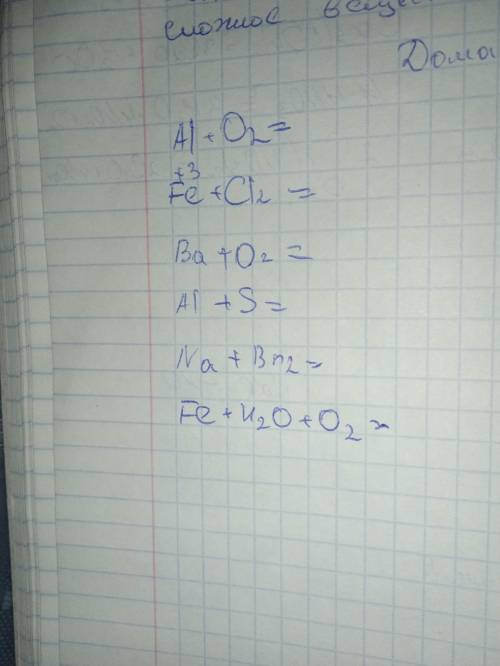 сложное веще
Дома
Al + O2 =
+3
Fe + Cl2 =
Ba + O2 =
Al + S =
Na + Br2 =
Fe + H2O + O2 =